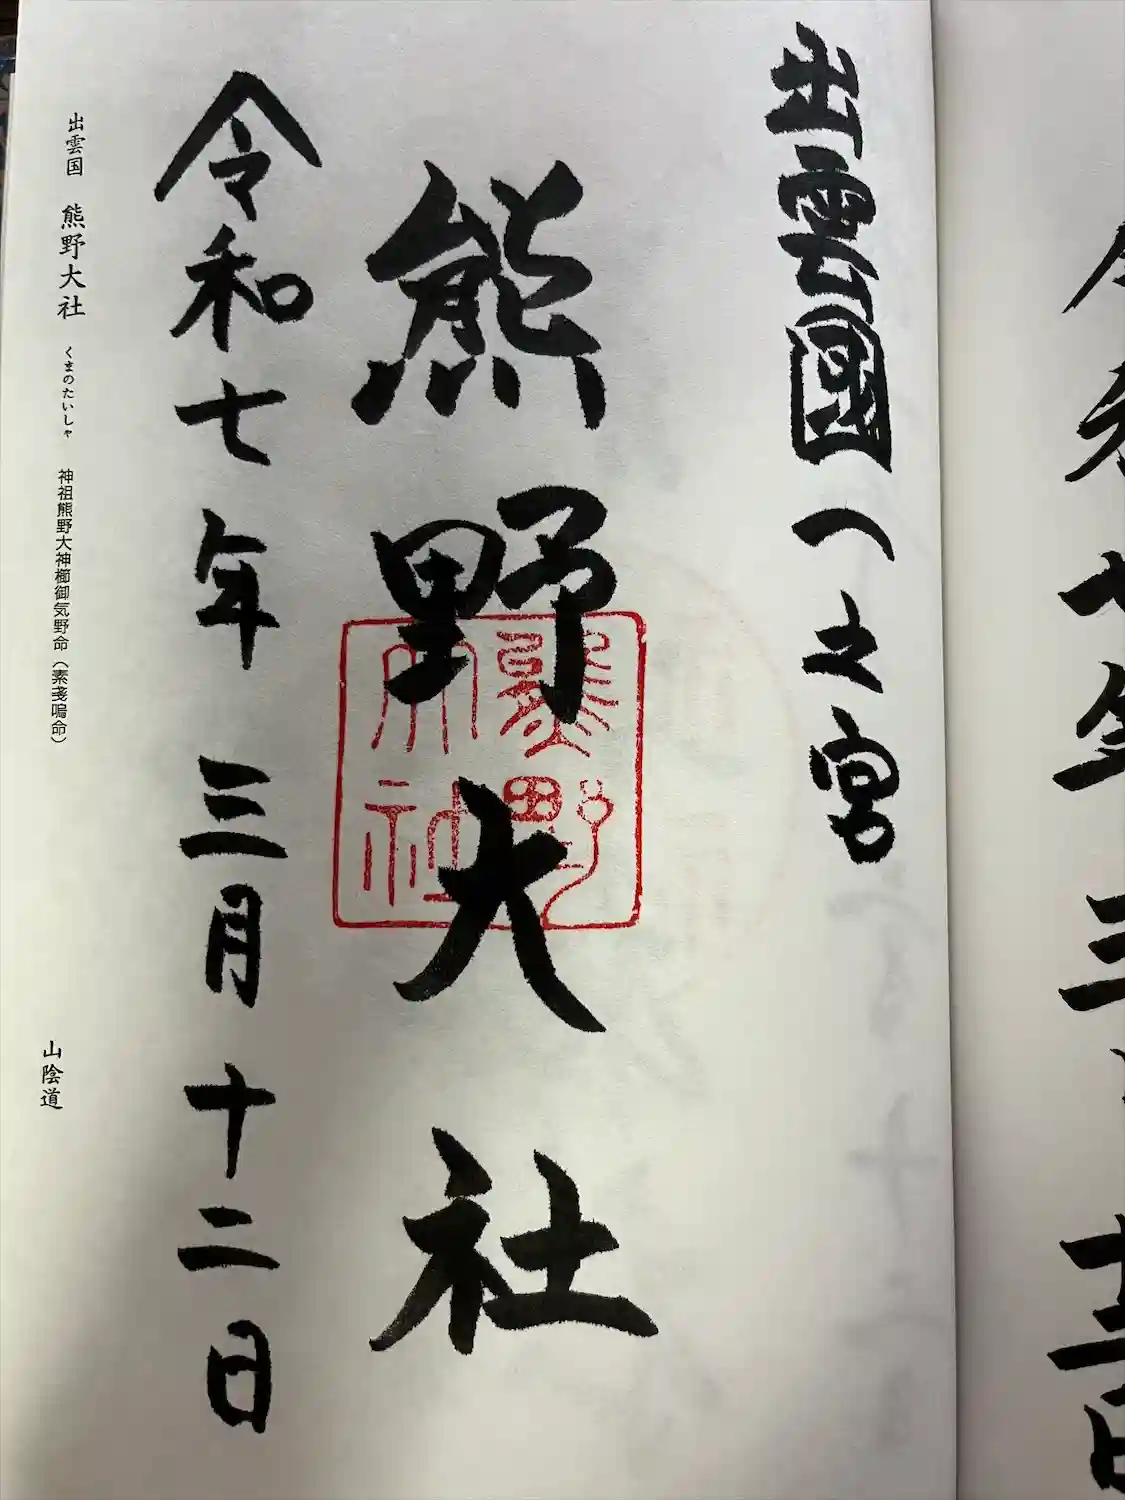 出雲國一之宮
熊野大社
熊野大社
令和七年 三月十二日
出雲国 熊野大社 くまのたいしゃ 神祖熊野大神櫛御気野命(素戔嗚命) 山陰道